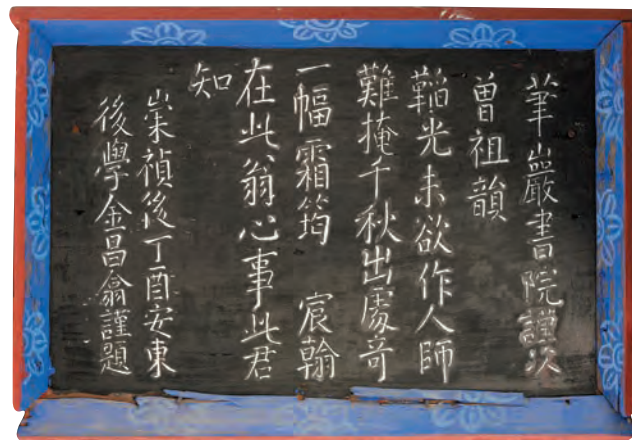 筆巖書院謹次
曾祖韻
韜光未欲作人師
難掩千秋出處奇
一幅霜筠 宸翰
在此翁心事此君
知
崇禎後丁酉安東
後學金昌翕謹題